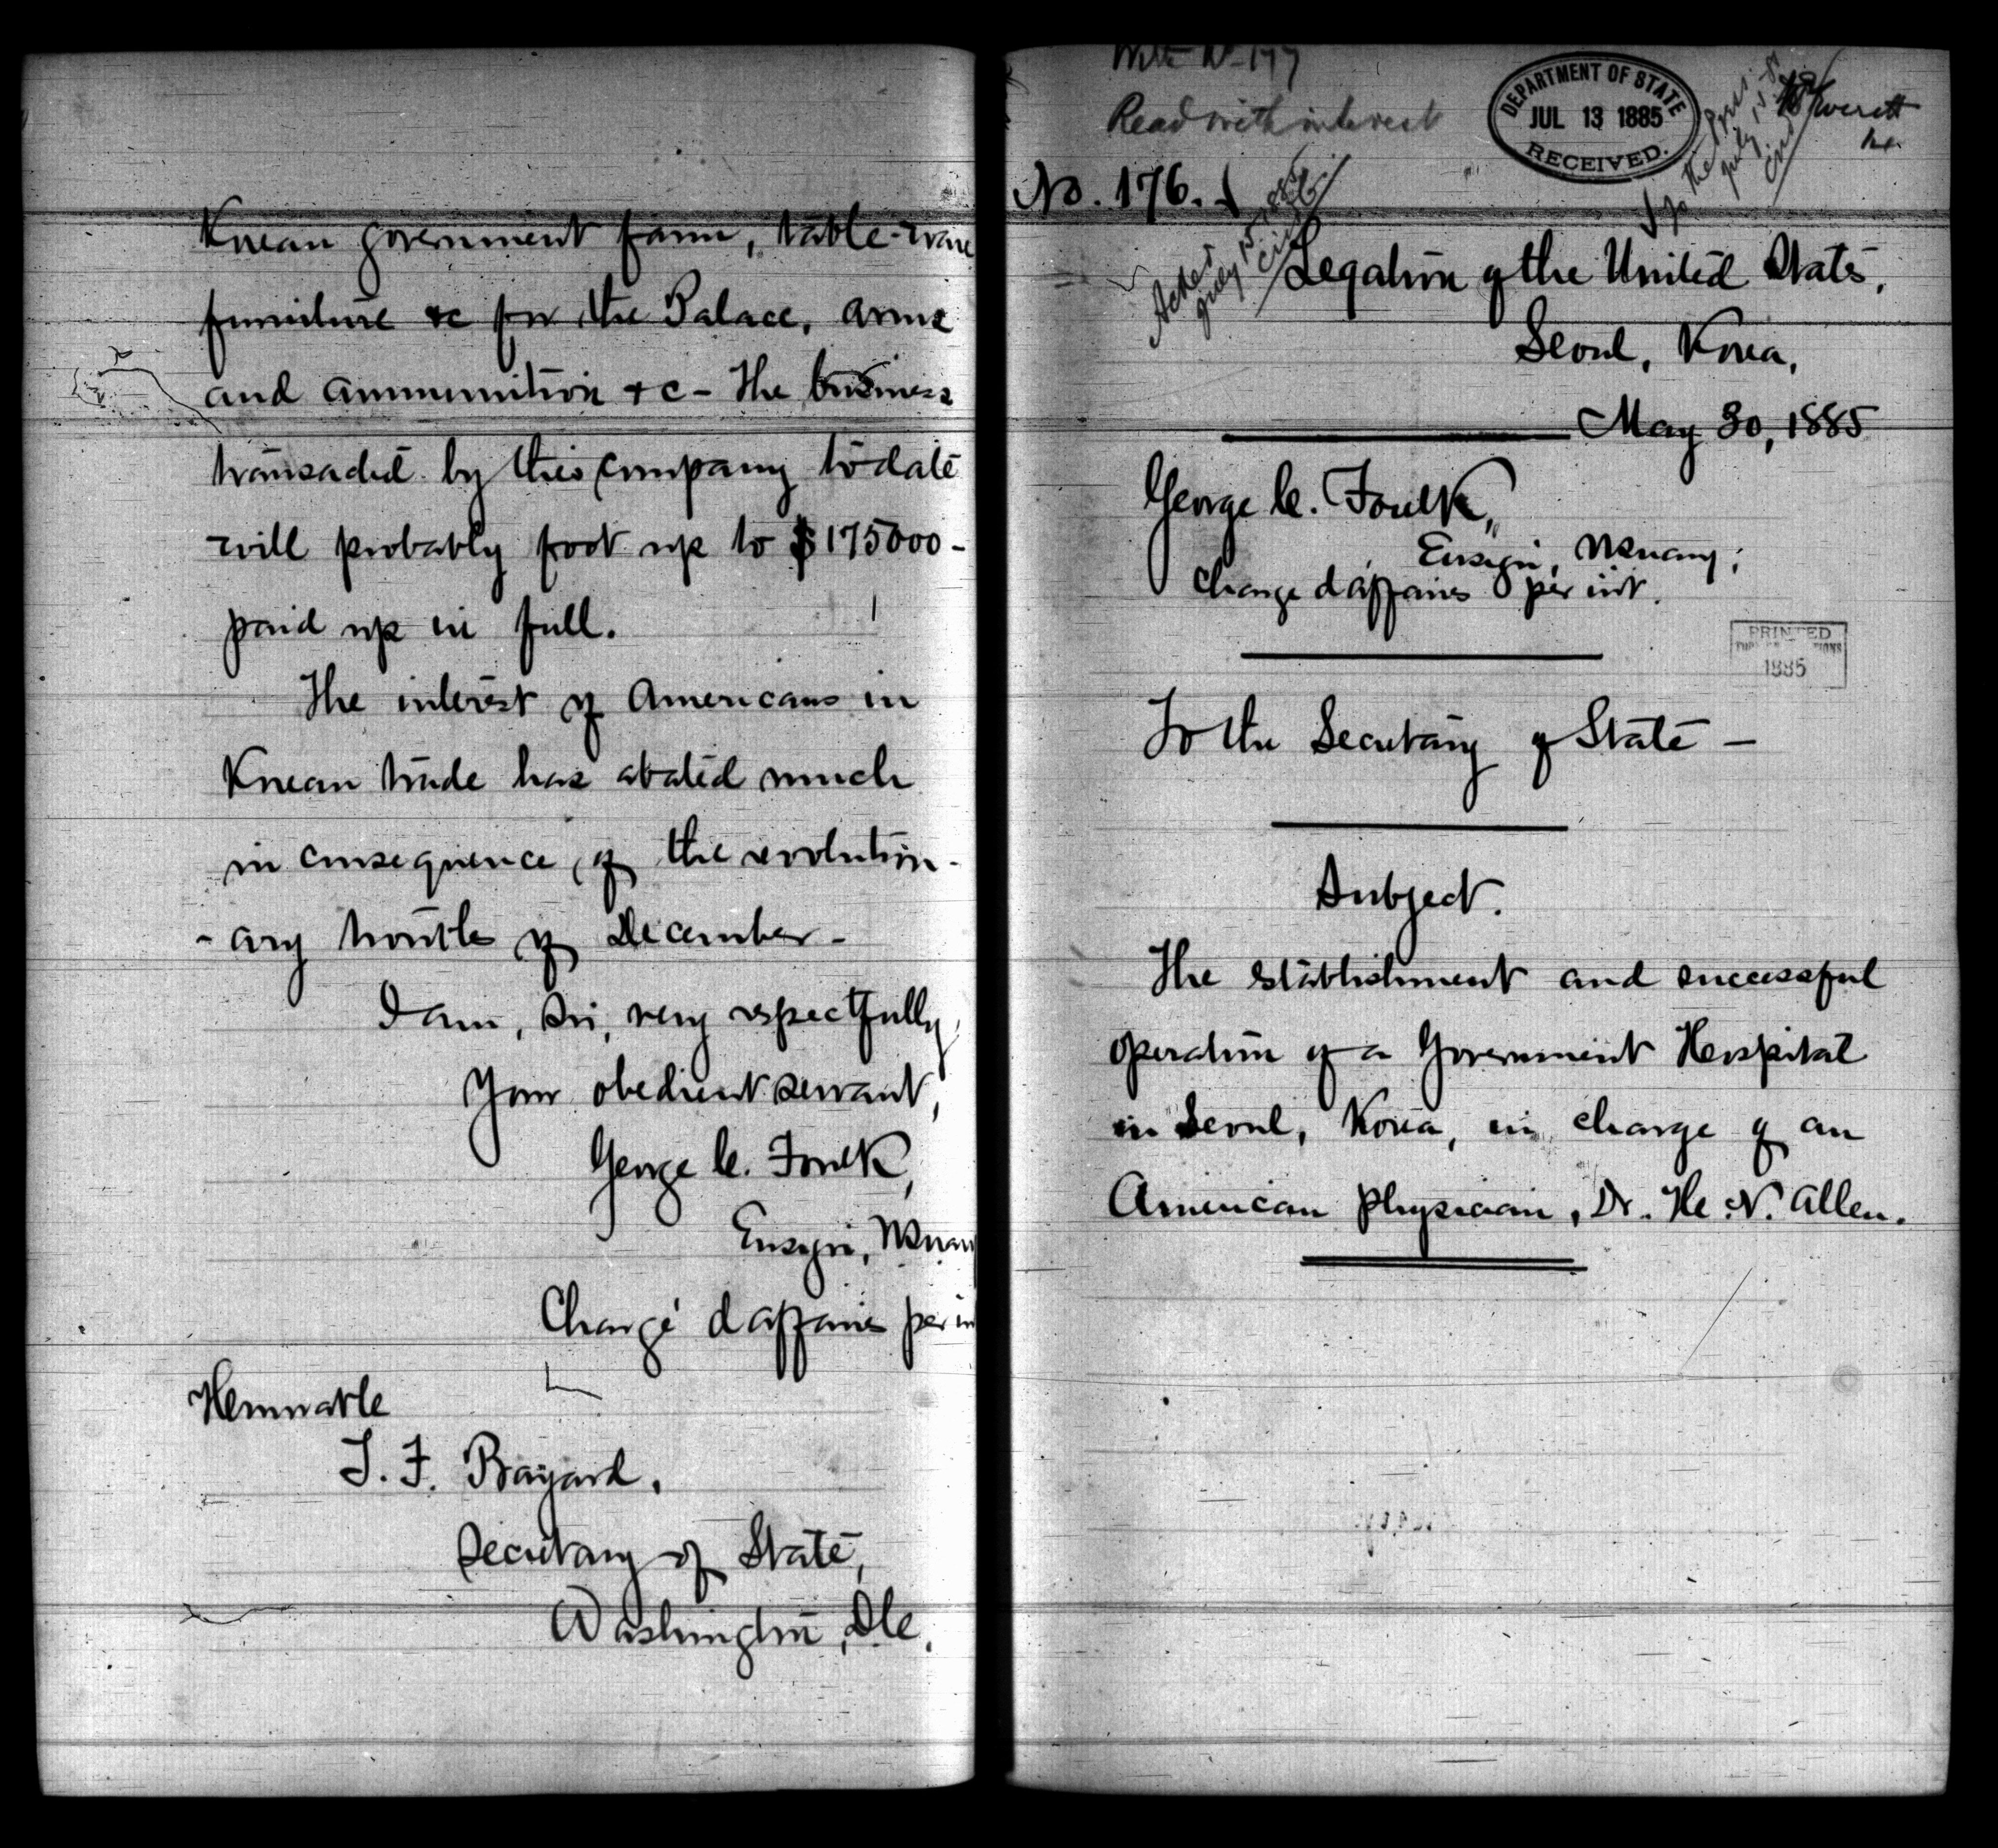 Korean government farm, table-ware
furniture &c for the Palace, arms
and ammunition &c - The business
transacted by this company to date
will probably foot up to $175000 -
paid up in full.
The interest of Americans in
Korean trade has abated much
in consequence of the revolution-
-ary troubles of December -
I am, Sir, very respectfully,
Your obedient servant,
George C. Foulk,
Ensign, U.S. Navy
Chargé d'affaires per in
Honorable
T. F. Bayard,
Secretary of State,
Washington, D.C.
Read with interest
DEPARTMENT OF STATE
JUL 13 1885
RECEIVED.
To the Press
July 15
No. 176.
July 15, 1885
Legation of the United States,
Seoul, Korea,
May 30, 1885
George C. Foulk,
Ensign, U.S. Navy;
Charge d'affaires per int.
PRINTED
1885
To the Secretary of State -
Subject.
The establishment and successful
operation of a Government Hospital
in Seoul, Korea, in charge of an
American physician, Dr. H. N. Allen.